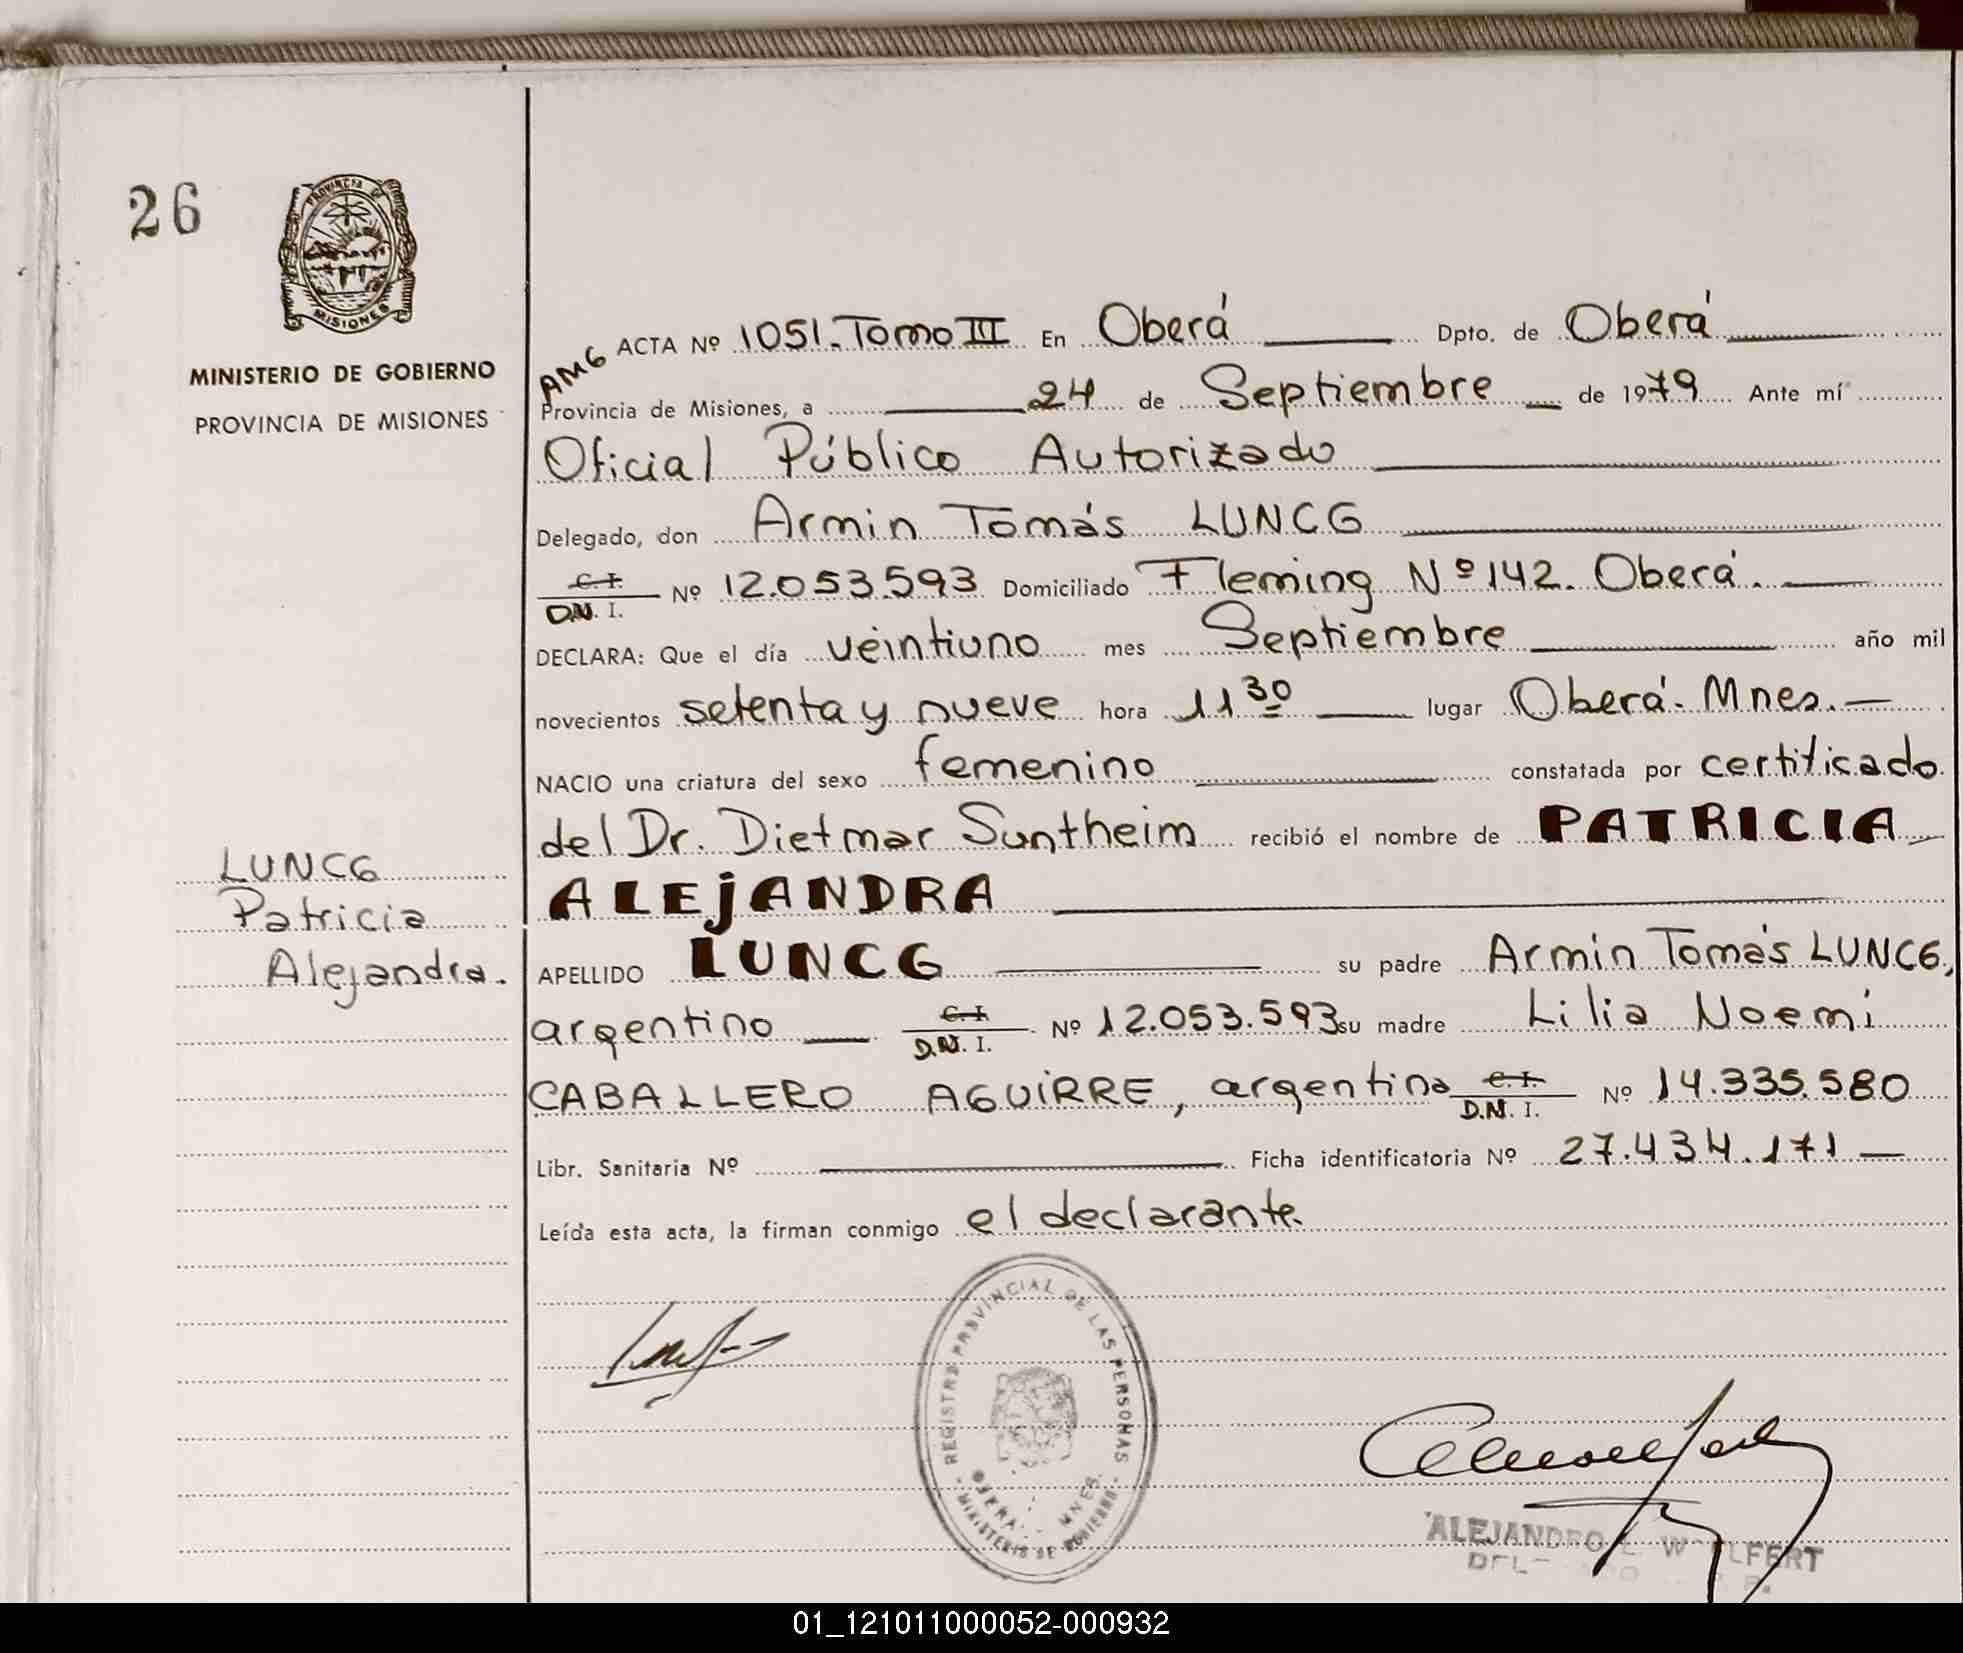 26
PROVINCIA DE
MISIONES
MINISTERIO DE GOBIERNO
PROVINCIA DE MISIONES
AMG
ACTA Nº 1051. Tomo III En Oberá Dpto. de Oberá
Provincia de Misiones, a 24 de Septiembre de 1979 Ante mí
Oficial Público Autorizado
Delegado, don Armin Tomás LUNCG
C. I.
D.N. I. Nº 12.053.593 Domiciliado Fleming Nº 142. Oberá.
DECLARA: Que el día veintiuno mes Septiembre año mil
novecientos setenta y nueve hora 11 30 lugar Oberá. Mnes.
NACIO una criatura del sexo femenino constatada por certificado
del Dr. Dietmar Suntheim recibió el nombre de PATRICIA
ALEjANDRA
LUNCG
Patricia
Alejandra.
APELLIDO LUNCG su padre Armin Tomás LUNCG,
argentino C. I. D.N. I. Nº 12.053.593 su madre Lilia Noemi
CABALLERO AGUIRRE, argentina C. I. D.N. I. Nº 14.335.580
Libr. Sanitaria Nº Ficha identificatoria Nº 27.434.171
Leída esta acta, la firman conmigo el declarante.
REGISTRO PROVINCIAL DE LAS PERSONAS
OBERA MNES.
MINISTERIO DE GOBIERNO
ALEJANDRO
01_121011000052-000932